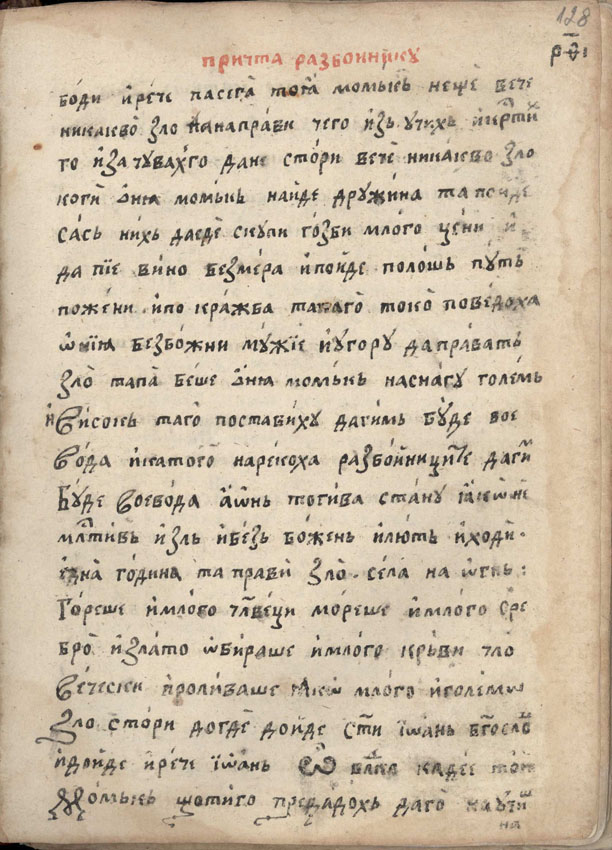 128
рѳ҃і
причта разбоиникꙋ
боди ѝ рече пасега тога момькь неще вече
никакво зло да направи чего изь учихь
го и зачувахго дане стори вече никакво зло
коги ѡния момькь найде дружина та пойде
сась нихь да еде скупи гозби млого цени и
да пїе вино безмера и пойде полошь пꙋть
пожени и по кражба та паго токо поведоха
ѡнїѧ безбожни мужїе и у гору да правать
зло тапа беше ѡния момькь на снагу големь
и високь таго поставиху да гимь бꙋде вое
вода и като го нарекоха разбойниците да ги
буде воевода а ѡнь тогива стану ꙗко не
млтивь и зль и безь божень и лють и ходи
една година та прави зло. села на ѡгнь:
гореше и млого члвеци мореше и млого сре
бро и злато ѡбираше и млого крьви чло
вечески проливаше ꙗкѡ млого и големѡ
зло стори догде дойде сти їѡань бгословь
и дойде и рече їѡань Ѽ влдко каде е той
момькь що ти го предадохь да го научишь
на